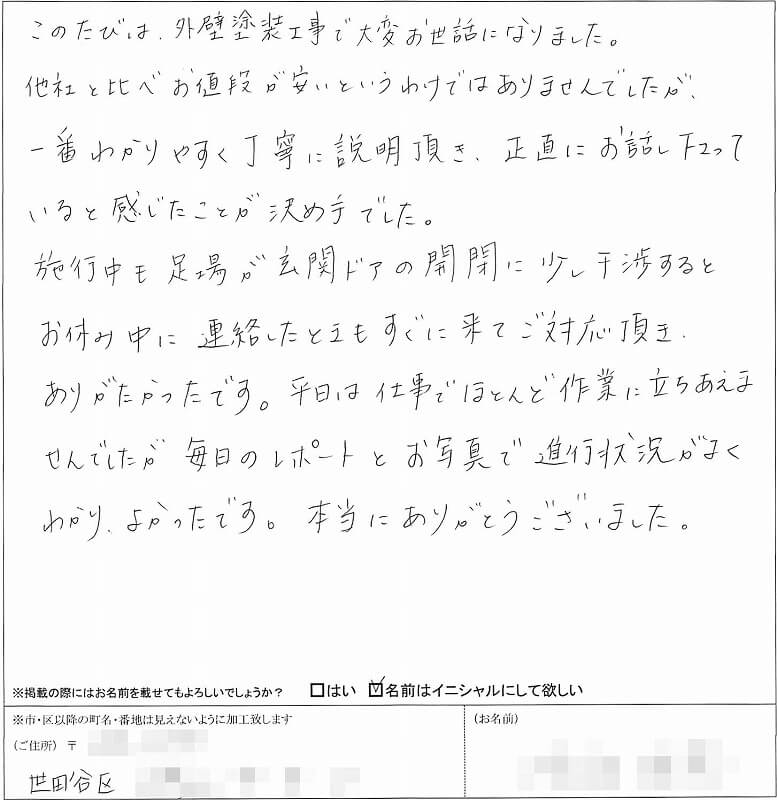 このたびは、外壁塗装工事で大変お世話になりました。
他社と比べお値段が安いというわけではありませんでしたが、
一番わかりやすく丁寧に説明頂き、正直にお話し下さって
いると感じたことが決め手でした。
施行中も足場が玄関ドアの開閉に少し干渉すると
お休み中に連絡したときもすぐに来てご対応頂き、
ありがたかったです。平日は仕事でほとんど作業に立ちあえま
せんでしたが毎日のレポートとお写真で進行状況がよく
わかり、よかったです。本当にありがとうございました。
※掲載の際にはお名前を載せてもよろしいでしょうか? □はい ☑名前はイニシャルにして欲しい
※市・区以降の町名・番地は見えないように加工致します
(お名前)
(ご住所) 〒
世田谷区